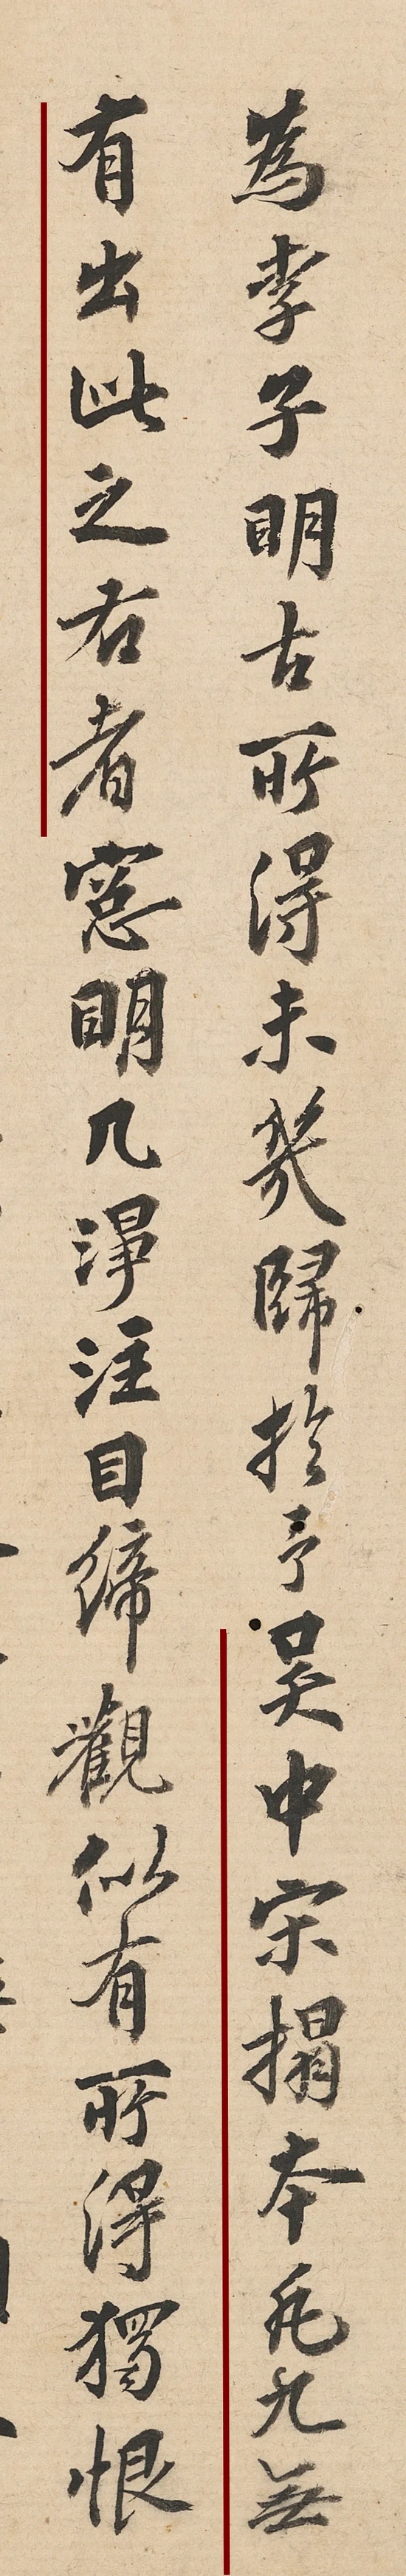 為李子明古所得未幾歸於予吴中宋搨本凡九無
有出此之右者窓明几淨注目締觀似有所得獨恨